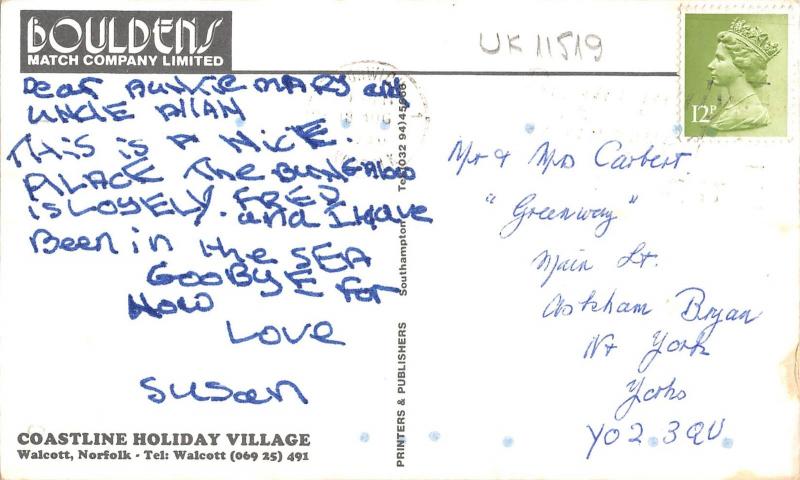 BOULDENS
MATCH COMPANY LIMITED
UK 11519
12P
Dear AUNTIE MARY and
UNCLE AllAN
THIS IS A NICE.
PlACE THE BUNGAlOW
IS LOVELY. FRED
and I Have
Been in the SEA
GOODBYE For
Now
LOVE
SUSan
COASTLINE HOLIDAY VILLAGE
Walcott, Norfolk - Tel: Walcott (069 25) 491
PRINTERS & PUBLISHERS Southampton Tel: (032 94)
Mr & Mrs Carbert.
"Greenway"
Main St.
Askham Bryan
Nr York
Yorks
YO2 3QU